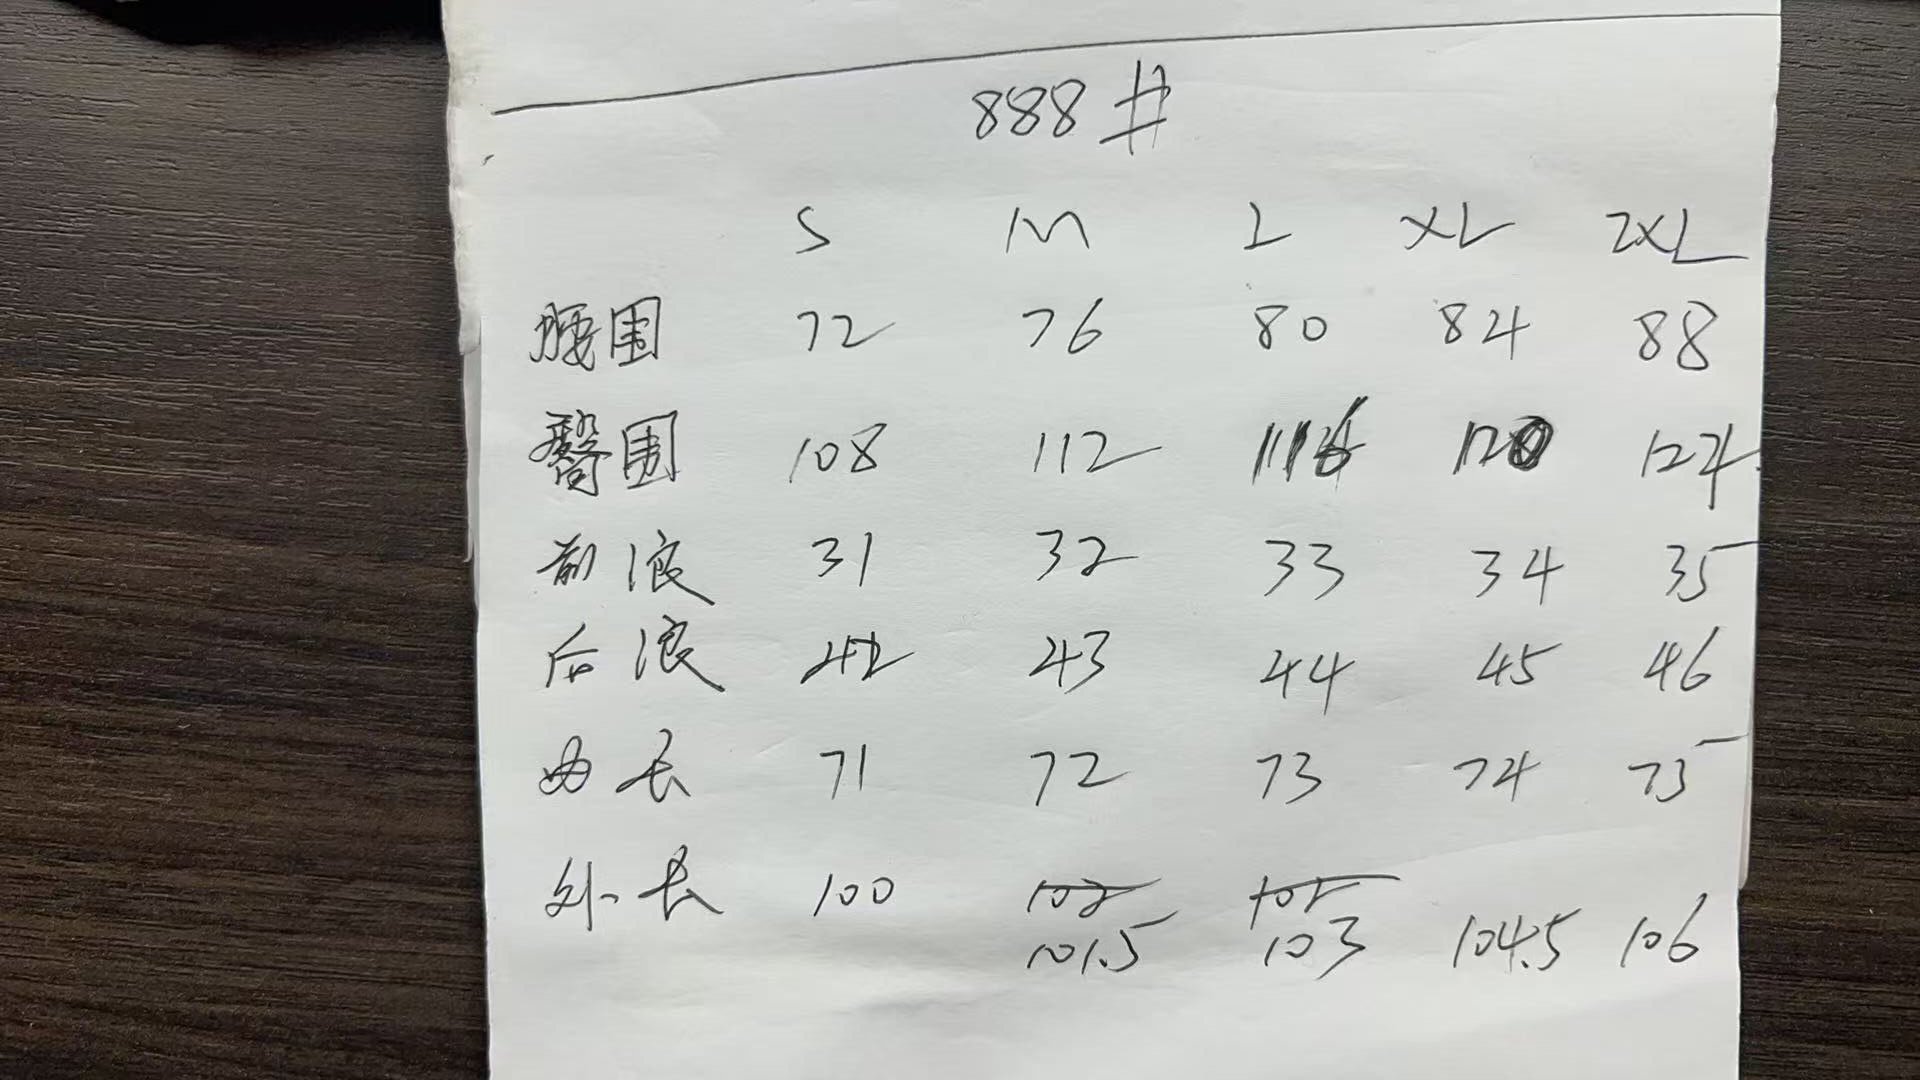 888#
S M L XL 2XL
腰围 72 76 80 84 88
臀围 108 112 116 120 124
前浪 31 32 33 34 35
后浪 42 43 44 45 46
内长 71 72 73 74 75
外长 100 102 102 
101.5 103 104.5 106